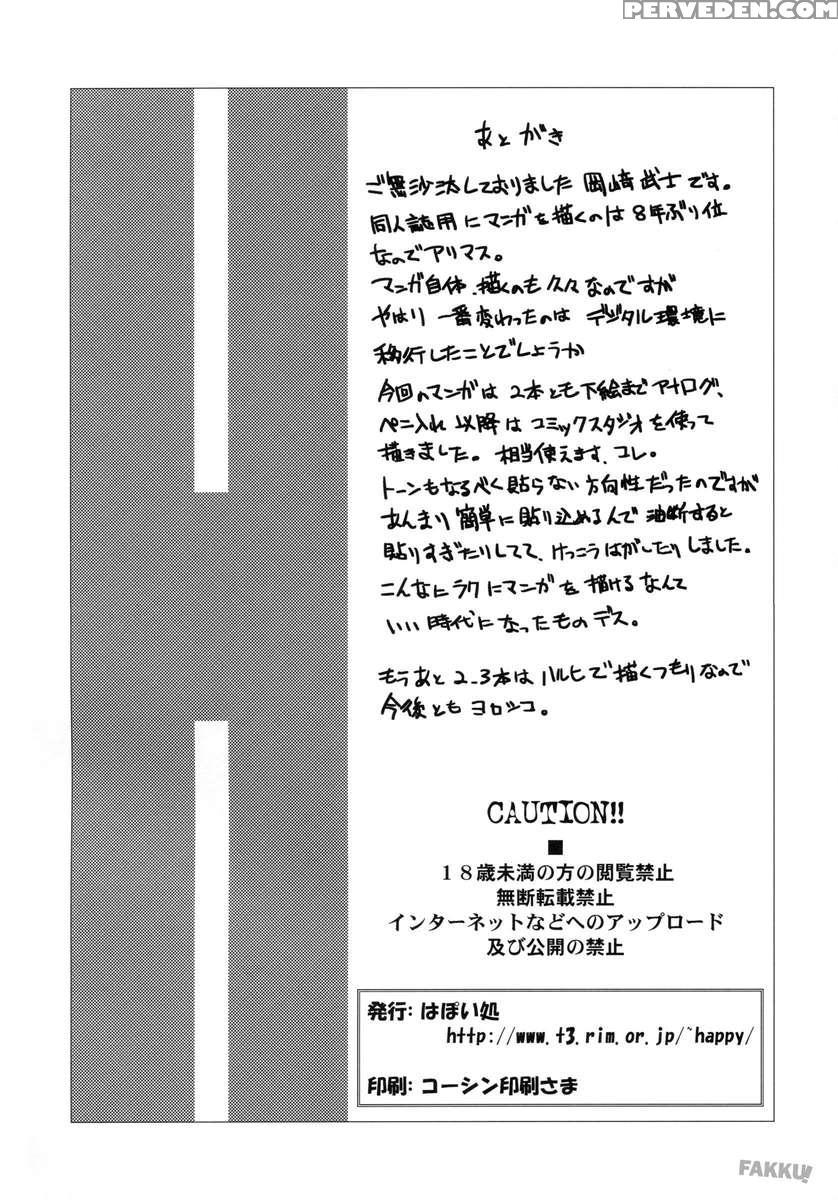 PERVEDEN.COM
あとがき
ご無沙汰しておりました 岡崎武士です。
同人誌用にマンガを描くのは8年ぶり位
なのでアリマス。
マンガ自体、描くのも久々なのですが
やはり 一番変わったのは デジタル環境に
移行したことでしょうか
今回のマンガは 2本とも下絵までアナログ、
ペン入れ以降はコミックスタジオを使って
描きました。相当使えます、コレ。
トーンもなるべく貼らない方向性だったのですが
あんまり簡単に貼り込めるんで油断すると
貼りすぎたりしてて、けっこうはがしたりしました。
こんなにラクにマンガを描けるなんて
いい時代になったものデス。
もうあと2_3本はハルヒで描くつもりなので
今後ともヨロシコ。
CAUTION!!
■
18歳未満の方の閲覧禁止
無断転載禁止
インターネットなどへのアップロード
及び公開の禁止
発行: はぽい処
http://www.t3.rim.or.jp/~happy/
印刷: コーシン印刷さま
FAKKU!